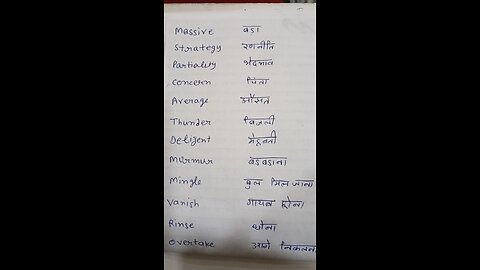 Massive बडा
Strategy रणनीति
Partiality भेदभाव
Concern चिंता
Average औसत
Thunder बिजली
Deligent मेहनती
Murmur बडबडाना
Mingle घुल मिल जाना
Vanish गायब होना
Rinse धोना
Overtake आगे निकलना